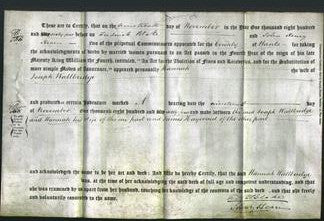 These are to Certify, that on the day of November in the Year One thousand eight hundred
and before us Frederick Blake and John Henry
two of the perpetual Commissioners appointed for the County of for
taking the acknowledgments of deeds by married women pursuant to an Act passed in the Fourth Year of the reign of his late
Majesty King William the Fourth, intituled, "An Act for the Abolition of Fines and Recoveries, and for the Substitution of
more simple Modes of Assurance," appeared personally Hannah the wife of
Joseph Wallbridge
and produced a certain Indenture marked bearing date the day
of November One thousand eight hundred and made between the said Joseph Wallbridge
and Hannah his wife of the one part and Raymond of the other part
and acknowledged the same to be her act and deed: And We do hereby Certify, that the said Hannah Wallbridge
was, at the time of her acknowledging the said deed of full age and competent understanding, and that
she was examined by us apart from her husband, touching her knowledge of the contents of the said deed, and that she freely
and voluntarily consented to the same.